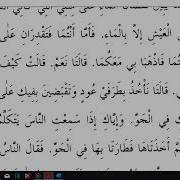 الْعَيْشِ إِلَّا بِالْمَاءِ. فَأَمَّا أَنْتُمَا فَتَقْدِرَانِ عَلَى
فَاذْهَبَا بِي مَعَكُمَا. قَالَتَا نَعَمْ. قَالَتْ كَيْفَ
قَالَتَا نَأْخُذُ بِطَرَفَيْ عُودٍ وَتَقْبِضِينَ بِفِيكِ عَلَى
بِكِ فِي الْجَوِّ. وَإِيَّاكِ إِذَا سَمِعْتِ النَّاسَ يَتَكَلَّمُ
ثُمَّ أَخَذَتَاهَا فَطَارَتَا بِهَا فِي الْجَوِّ. فَقَالَ النَّاسُ